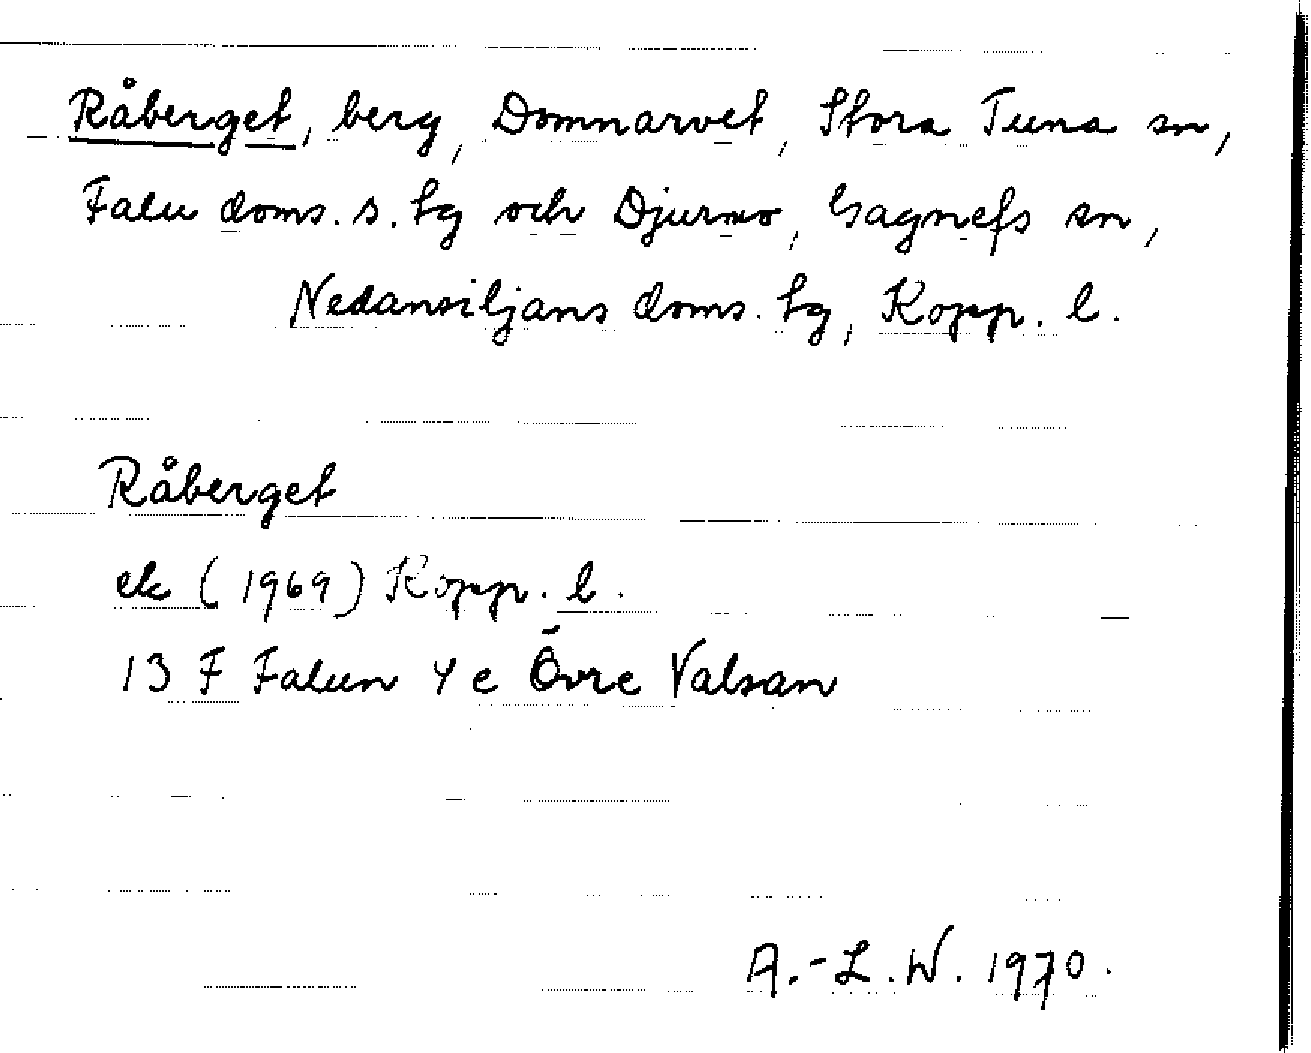 Råberget, berg, Domnarvet, Stora Tuna sn,
Falu doms. s. tg och Djurmo, Gagnefs sn,
Nedansiljans doms. tg, Kopp. l.
Råberget
ek (1969) Kopp. l.
13 F Falun 4 e Övre Valsan
A.-L. W. 1970.